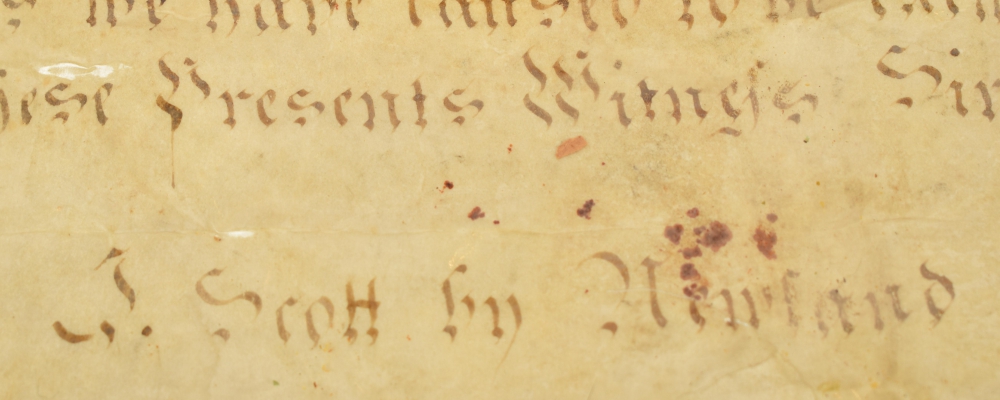 we have caused to be
these Presents Witness Sir
J. Scott by Newland